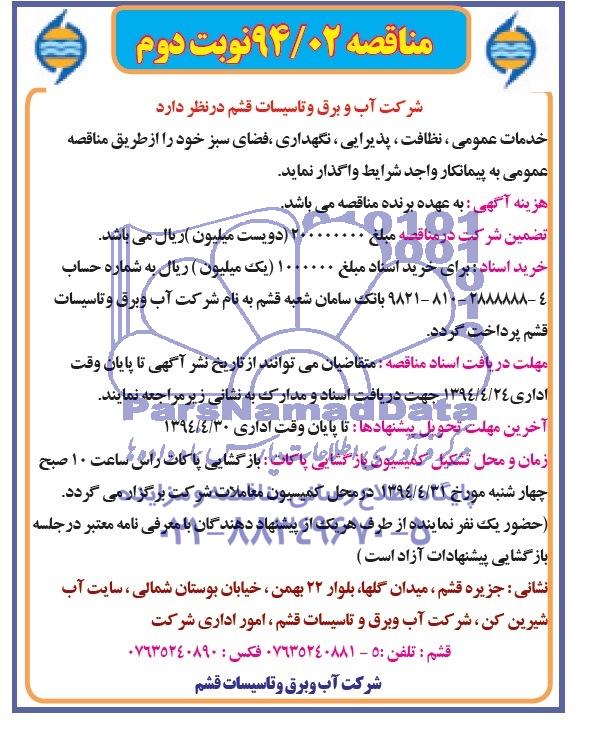 مناقصه ۹۴/۰۲نوبت دوم
شرکت آب و برق وتاسیسات قشم درنظر دارد
خدمات عمومی ، نظافت ، پذیرایی ، نگهداری ،فضای سبز خود را ازطریق مناقصه
عمومی به پیمانکار واجد شرایط واگذار نماید.
هزینه آگهی : به عهده برنده مناقصه می باشد.
تضمین شرکت درمناقصه مبلغ ۲۰۰۰۰۰۰۰۰ (دویست میلیون )ریال می باشد.
خرید اسناد : برای خرید اسناد مبلغ ۱۰۰۰۰۰۰ (یک میلیون ) ریال به شماره حساب
۴ -۲۸۸۸۸۸۸ -۸۱۰ -۹۸۲۱ بانک سامان شعبه قشم به نام شرکت آب وبرق وتاسیسات
قشم پرداخت گردد.
مهلت دریافت اسناد مناقصه : متقاضیان می توانند ازتاریخ نشر آگهی تا پایان وقت
اداری۱۳۹۴/۴/۲۴ جهت دریافت اسناد و مدارک به نشانی زیرمراجعه نمایند.
ParsNamadData
آخرین مهلت تحویل پیشنهادها : تا پایان وقت اداری ۱۳۹۴/۴/۳۰
زمان و محل تشکیل کمیسیون بازگشایی پاکات : بازگشایی پاکات راس ساعت ۱۰ صبح
چهار شنبه مورخ ۱۳۹۴/۴/۳۱ درمحل کمیسیون معاملات شرکت برگزار می گردد.
(حضور یک نفر نماینده از طرف هریک از پیشنهاد دهندگان با معرفی نامه معتبر درجلسه
۰۲۱-۸۸۳۴۹۶۷۰-۵
بازگشایی پیشنهادات آزاد است )
نشانی : جزیره قشم ، میدان گلها، بلوار ۲۲ بهمن ، خیابان بوستان شمالی ، سایت آب
شیرین کن ، شرکت آب وبرق و تاسیسات قشم ، امور اداری شرکت
قشم : تلفن :۵ - ۰۷۶۳۵۲۴۰۸۸۱ فکس : ۰۷۶۳۵۲۴۰۸۹۰
شرکت آب وبرق وتاسیسات قشم